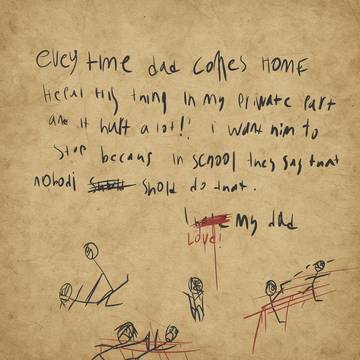 evey time dad comes HOME
He put His tning in my private part
ane it hurt a lot!! i want him to
stop becaus in scnool they say tnat
nobodi shold do tnat.
I hate my dad
Love!